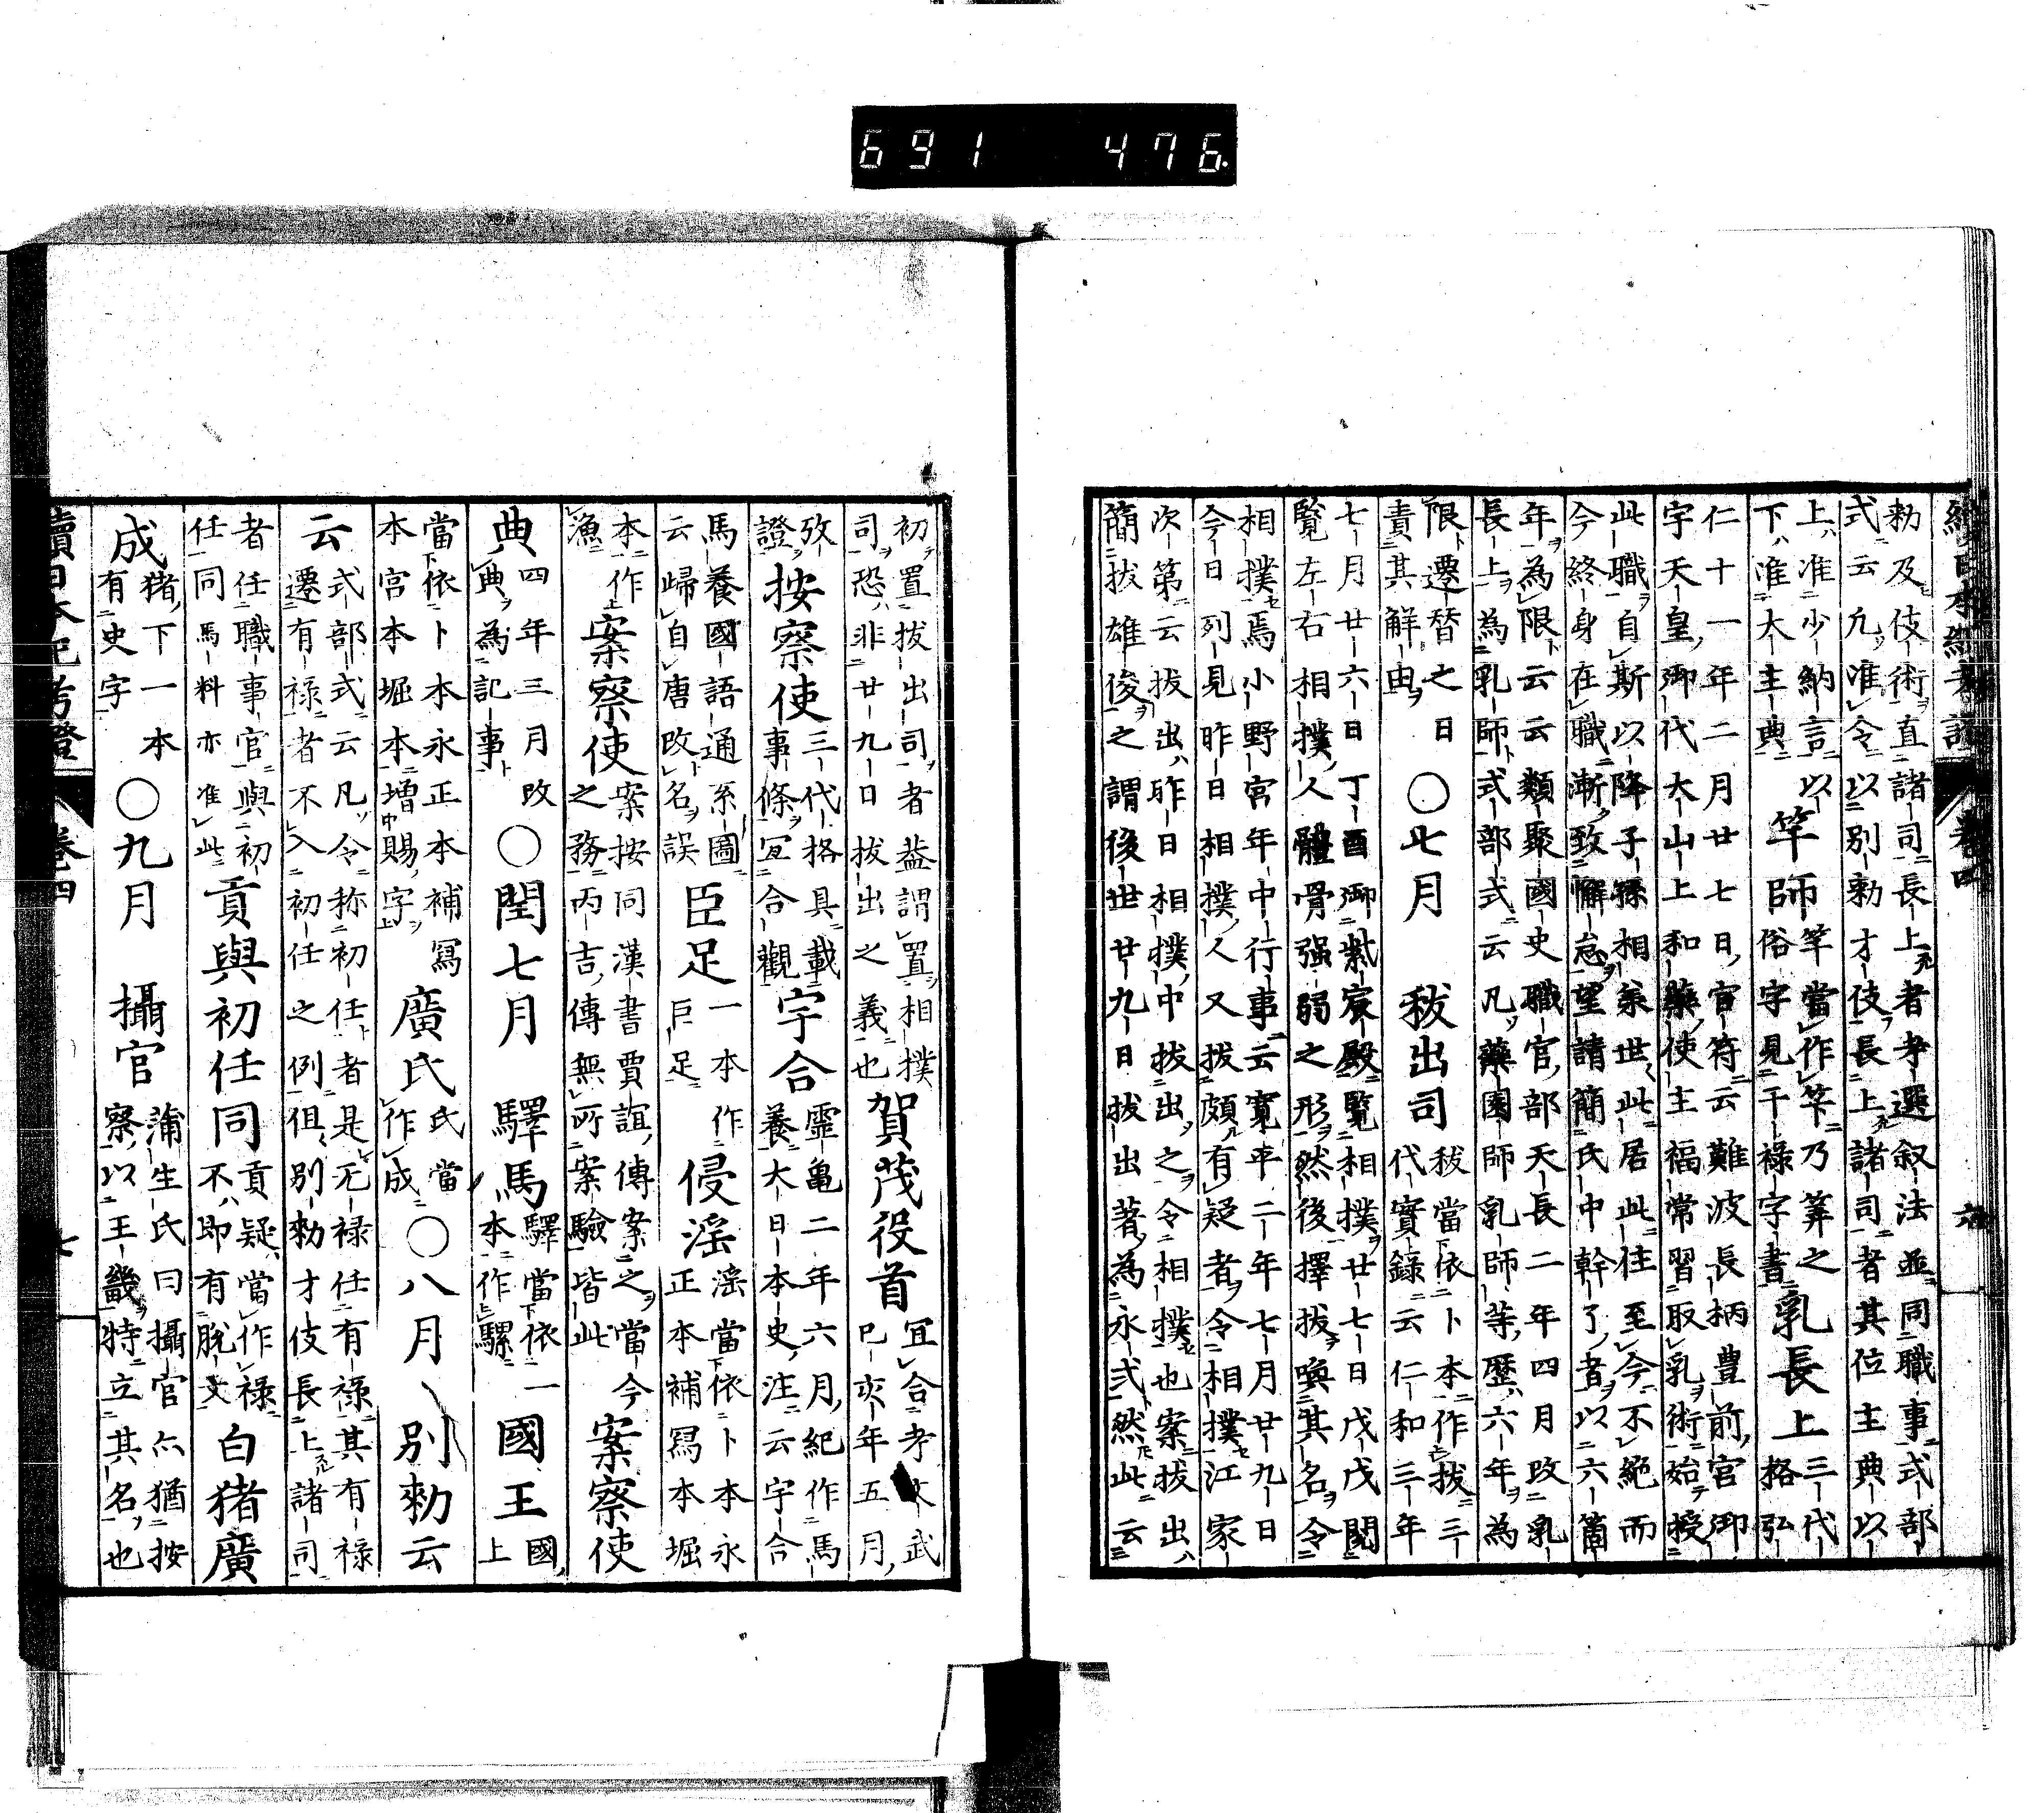 691 476
續日本紀考證 卷四 六
勅及伎術直諸司長上者考選叙法並同職事式部
式云凡准令以別勅才伎長上諸司者其位主典以
上准少納言以
下准大主典
竿師
竿當作竿乃筭之
俗字見干祿字書
乳長上
三代
格弘
仁十一年二月廿七日官符云難波長柄豊前宮御
字天皇御代大山上和藥使主福常習取乳術始授
此職自斯以降子孫相承世此居此任至今不絶而
今終身在職漸致懈怠望請簡氏中幹了者以六箇
年為限云云類聚國史職官部天長二年四月改乳
長上為乳師式部式云凡藥園師乳師等歷六年為
限遷替之日
責其解由
〇七月 秡出司
秡當依卜本作拔三
代實錄云仁和三年
七月廿六日丁酉御紫宸殿覧相撲廿七日戊戌閲
覧左右相撲人體骨强弱之形然後擇拔喚其名令
相撲焉小野宮年中行事云寛平二年七月廿九日
今日列見昨日相撲人又拔頗有疑者令相撲江家
次第云拔出昨日相撲中拔出之令相撲也案拔出
簡拔雄俊之謂後世廿九日拔出著為永式然此云
初置拔出司者盖謂置相撲
司恐非廿九日拔出之義也
賀茂役首
宜合考文武
巳亥年五月
攷
證
按察使
三代格具載
事條宜合觀
宇合
靈亀二年六月紀作馬
養大日本史注云宇合
馬養國語通系圖
云歸自唐改名誤
臣足
一本作
巨足
侵滛
滛當依卜本永
正本補冩本堀
本作
漁
案察使
案按同漢書賈誼傳案之當今
之務丙吉傳無所案驗皆此
案察使
典
四年三月改
典為記事
〇閏七月 驛馬
驛當依一
本作騾
國王
國
上
當依卜本永正本補冩
本宮本堀本增賜字
廣氏
氏當
作成
〇八月 別勅云
云
式部式云凡令称初任者是无禄任有禄其有禄
遷有禄者不入初任之例但別勅才伎長上諸司
者任職事官與初
任同馬料亦准此
貢與初任同
貢疑當作禄
不即有脫文
白猪廣
成
猪下一本
有史字
〇九月 攝官
蒲生氏曰攝官亦猶按
察以王畿特立其名也
續日本紀考證 卷四 七